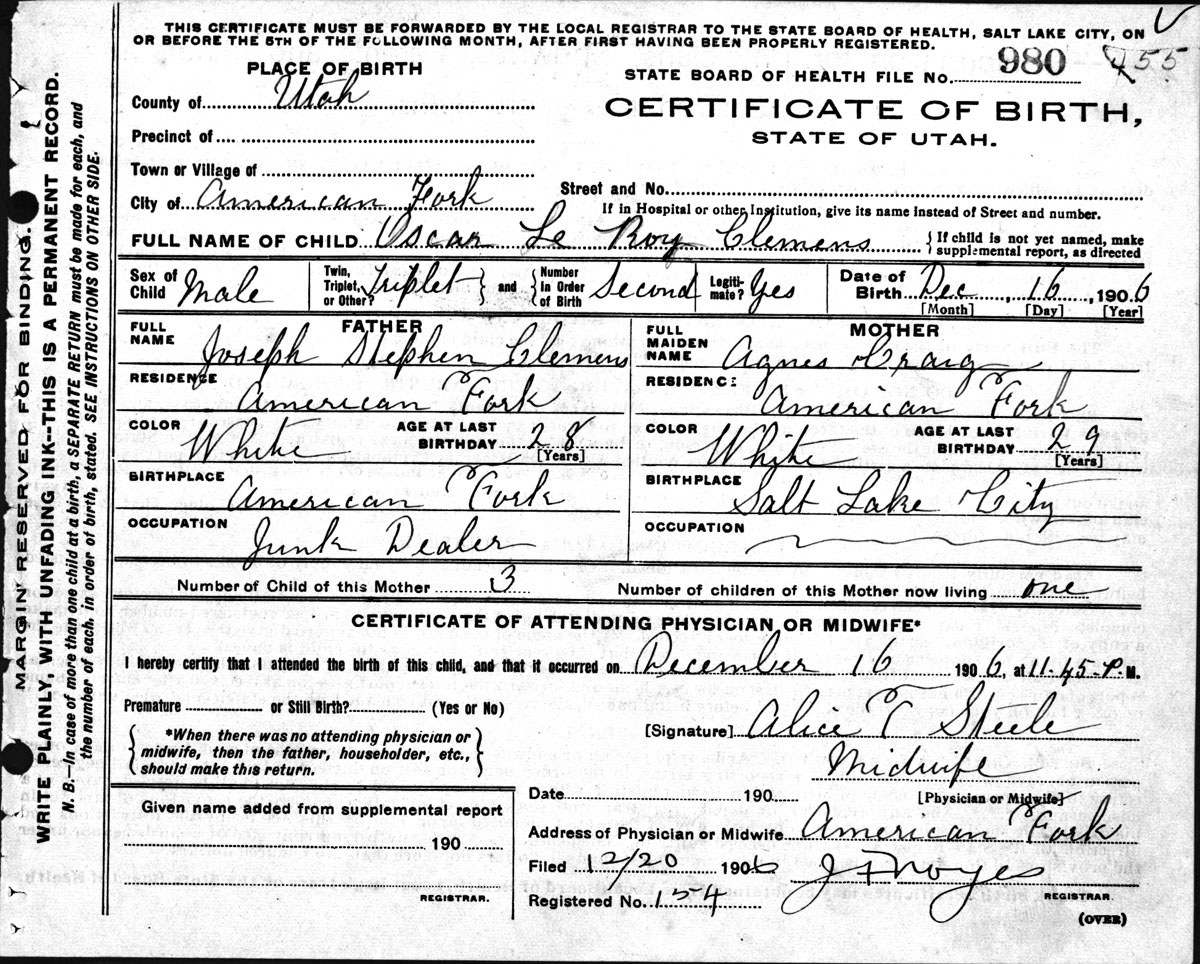 THIS CERTIFICATE MUST BE FORWARDED BY THE LOCAL REGISTRAR TO THE STATE BOARD OF HEALTH, SALT LAKE CITY, ON
OR BEFORE THE 5TH OF THE FOLLOWING MONTH, AFTER FIRST HAVING BEEN PROPERLY REGISTERED.
PLACE OF BIRTH
STATE BOARD OF HEALTH FILE No. 980
55
County of Utah
CERTIFICATE OF BIRTH,
STATE OF UTAH.
Precinct of
Town or Village of
Street and No.
City of American Fork
If in Hospital or other Institution, give its name instead of Street and number.
FULL NAME OF CHILD Oscar Le Roy Clemens { If child is not yet named, make supplemental report, as directed
Sex of Child Male
Twin, Triplet, or Other? Triplet } and { Number in Order of Birth Second
Legitimate? Yes
Date of Birth Dec, 16, 1906
[Month] [Day] [Year]
FATHER
FULL NAME Joseph Stephen Clemens
RESIDENCE American Fork
COLOR White AGE AT LAST BIRTHDAY 28 [Years]
BIRTHPLACE American Fork
OCCUPATION Junk Dealer
MOTHER
FULL MAIDEN NAME Agnes Craig
RESIDENCE American Fork
COLOR White AGE AT LAST BIRTHDAY 29 [Years]
BIRTHPLACE Salt Lake City
OCCUPATION
Number of Child of this Mother 3 Number of children of this Mother now living one
CERTIFICATE OF ATTENDING PHYSICIAN OR MIDWIFE*
I hereby certify that I attended the birth of this child, and that it occurred on December 16 1906, at 11.45-P.M.
Premature or Still Birth? (Yes or No)
[Signature] Alice T Steele
*When there was no attending physician or
midwife, then the father, householder, etc.,
should make this return.
Midwife
[Physician or Midwife]
Date 190
Given name added from supplemental report
190
REGISTRAR.
Address of Physician or Midwife American Fork
Filed 12/20 1906 J F Noyes
Registered No. 154 REGISTRAR.
(OVER)
MARGIN RESERVED FOR BINDING.
WRITE PLAINLY, WITH UNFADING INK—THIS IS A PERMANENT RECORD.
N. B.—In case of more than one child at a birth, a SEPARATE RETURN must be made for each, and
the number of each, in order of birth, stated. SEE INSTRUCTIONS ON OTHER SIDE.